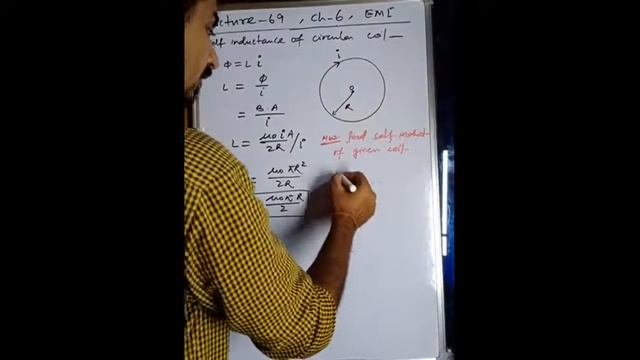 cture-69 , ch-6, EMI
elf inductance of circular coil
Φ = L i
L = Φ / i
= B·A / i
L = μo i A / 2R / i
= μo π R² / 2R
μo π R / 2
i
R
find self induct
of given coil